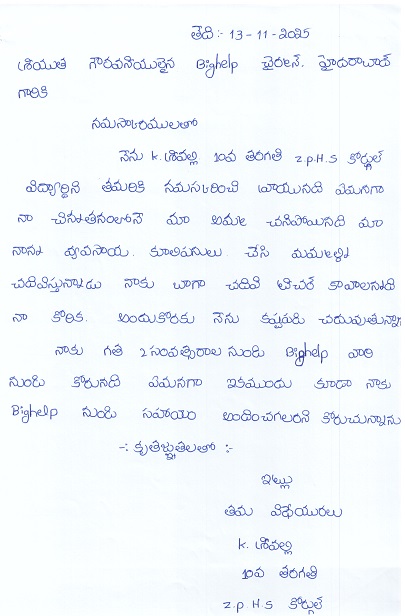 తేది :- 13 - 11 - 2025
శ్రీయుత గౌరవనీయులైన Bighelp చైర్మన్. హైదరాబాద్
గారికి
నమస్కారములతో
నేను k. శ్రీవల్లి 10వ తరగతి z.p.H.s కోర్టుల్
విద్యార్థిని తమరికి నమస్కరించి వ్రాయునది ఏమనగా
నా చిన్నతనంలోనే మా అమ్మ చనిపోయినది మా
నాన్న వ్యవసాయ. కూలిపనులు. చేసి మమ్మల్ని
చదివిస్తున్నాడు నాకు బాగా చదివి టీచర్ కావాలన్నది
నా కోరిక. అందుకొరకు నేను కష్టపడి చదువుతున్నా
నాకు గత 2 సంవత్సరాల నుండి Bighelp వారి
నుండి కోరునది ఏమనగా ఇకముందు కూడా నాకు
Bighelp నుండి సహాయం అందించగలరని కోరుచున్నాను
-: కృతజ్ఞతలతో :-
ఇట్లు
తమ విధేయురలు
k. శ్రీవల్లి
10వ తరగతి
z.p.H.s కోర్టుల్